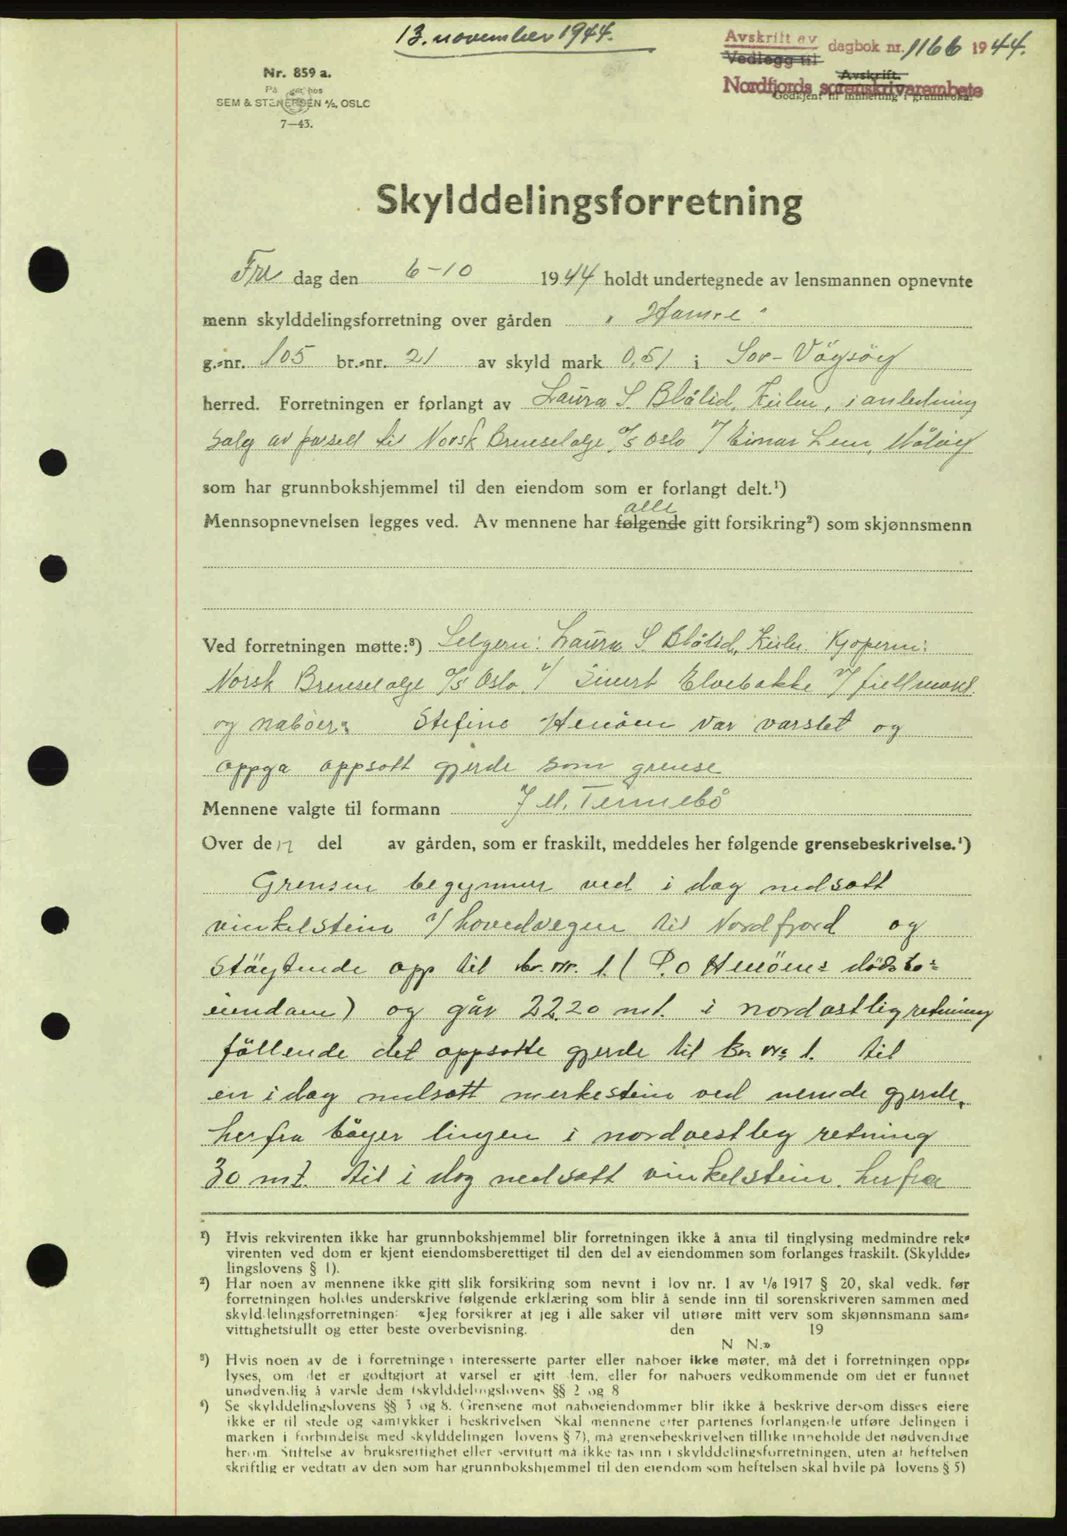 13. november 1944.
Avskrift av dagbok nr. 1166 1944.
Vedlegg til
Avskrift.
Nordfjords sorenskrivarembete
Godkjent til innhefting i grunnboka.
Nr. 859 a.
På hos
SEM & STENERSEN A/S, OSLO
7-43.
Skylddelingsforretning
Fre dag den 6-10 1944 holdt undertegnede av lensmannen opnevnte
menn skylddelingsforretning over gården "Hamre"
g.-nr. 105 br.-nr. 21 av skyld mark 0,51 i Sør-Vågsøy
herred. Forretningen er forlangt av Laura S. Blålid, i anledning
salg av parsell til Norsk Brenselolje A/S Oslo v/ Einar Lem, Måløy
som har grunnbokshjemmel til den eiendom som er forlangt delt.¹)
alle
Mennsopnevnelsen legges ved. Av mennene har følgende gitt forsikring²) som skjønnsmenn
Ved forretningen møtte:³) Selgeren: Laura S. Blålid, Kjøperen:
Norsk Brenselolje A/S Oslo v/ Sivert Elvebakke v/ fullmakt
og naboer: Stefine Henøen var varslet og
oppga oppsatt gjerde som grense
Mennene valgte til formann J M. Tennebö
Over den del av gården, som er fraskilt, meddeles her følgende grensebeskrivelse.⁴)
Grensen begynner ved i dag nedsatt
vinkelstein v/ hovedvegen til Nordfjord og
støytende opp til br. nr. 1. (P. O Henöens dødsbo-
eiendom) og går 22.20 mt. i nordostlig retning
föllende det oppsatte gjerde til br. nr. 1. til
en i dag nedsatt merkestein ved nemde gjerde,
herfra böyer linjen i nordvestleg retning
30 mt. til i dag nedsatt vinkelstein. herfra
¹) Hvis rekvirenten ikke har grunnbokshjemmel blir forretningen ikke å anta til tinglysing medmindre rek-
virenten ved dom er kjent eiendomsberettiget til den del av eiendommen som forlanges fraskilt. (Skyldde-
lingslovens § 1).
²) Har noen av mennene ikke gitt slik forsikring som nevnt i lov nr. 1 av 1/6 1917 § 20, skal vedk. før
forretningen holdes underskrive følgende erklæring som blir å sende inn til sorenskriveren sammen med
skylddelingsforretningen: «Jeg forsikrer at jeg i alle saker vil utføre mitt verv som skjønnsmann sam-
vittighetsfullt og etter beste overbevisning. den 19
N. N.»
³) Hvis noen av de i forretningen interesserte parter eller naboer ikke møter, må det i forretningen opp-
lyses, om det er godtgjort at varsel er gitt dem, eller for naboers vedkommende om det er funnet
unødvendig å varsle dem (skylddelingslovens §§ 2 og 8
⁴) Se skylddelingslovens §§ 3 og 8. Grensene mot naboeiendommer blir ikke å beskrive dersom disses eiere
ikke er til stede og samtykker i beskrivelsen. Skal mennene etter partenes forlangende utføre delingen i
marken i forbindelse med skylddelingen (lovens § 7), må grensebeskrivelsen tillike inneholde det nødvendige
herom. Stiftelse av bruksrettighet eller servitutt må ikke tas inn i skylddelingsforretningen, uten at heftelsen
skriftlig er vedtatt av den som har grunnbokshjemmel til den eiendom som heftelsen skal hvile på (lovens § 5)